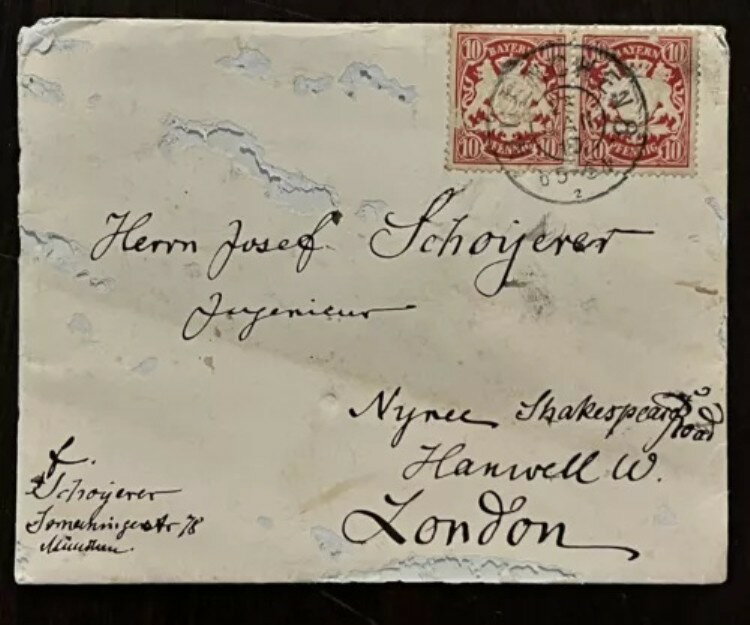 10 BAYERN 10
10 PFENNIG 10
BAYERN 10
10 PFENNIG 10
8
Herrn Josef Schoijerer
Ingenieur
Nyree Shakespeare Road
Hanwell W.
London
f.
Schoijerer
78
München.